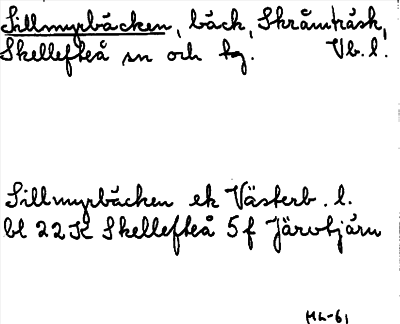 Sillmyrbäcken, bäck, Skråmträsk,
Skellefteå sn och kg. Vb. l.
Sillmyrbäcken ek Västerb. l.
bl 22K Skellefteå 5f Järvtjärn
ML-61